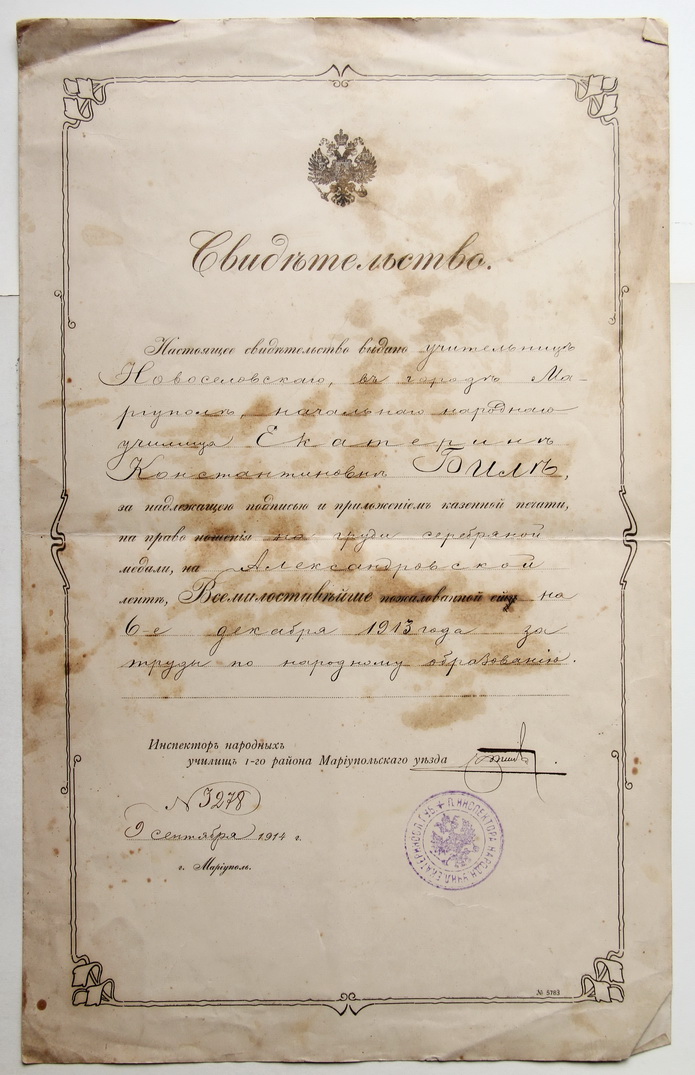 Свидѣтельство.
Настоящее свидѣтельство выдано учительницѣ
Новоселовскаго, въ городѣ Ма-
ріуполѣ, начальнаго народнаго
училища Екатеринѣ
Константиновнѣ Билѣ,
за надлежащею подписью и приложеніемъ казенной печати,
на право ношенія на груди серебряной
медали, на Александровской
лентѣ, Всемилостивѣйше пожалованной ей на
6-е декабря 1913 года за
труды по народному образованію.
Инспекторъ народныхъ
училищъ 1-го района Маріупольскаго уѣзда
№ 3278
9 сентября 1914 г.
г. Маріуполь.
ИНСПЕКТОРА НАРОДН. УЧИЛ. ЕКАТЕРИНОСЛ. ГУБ.
№ 5783